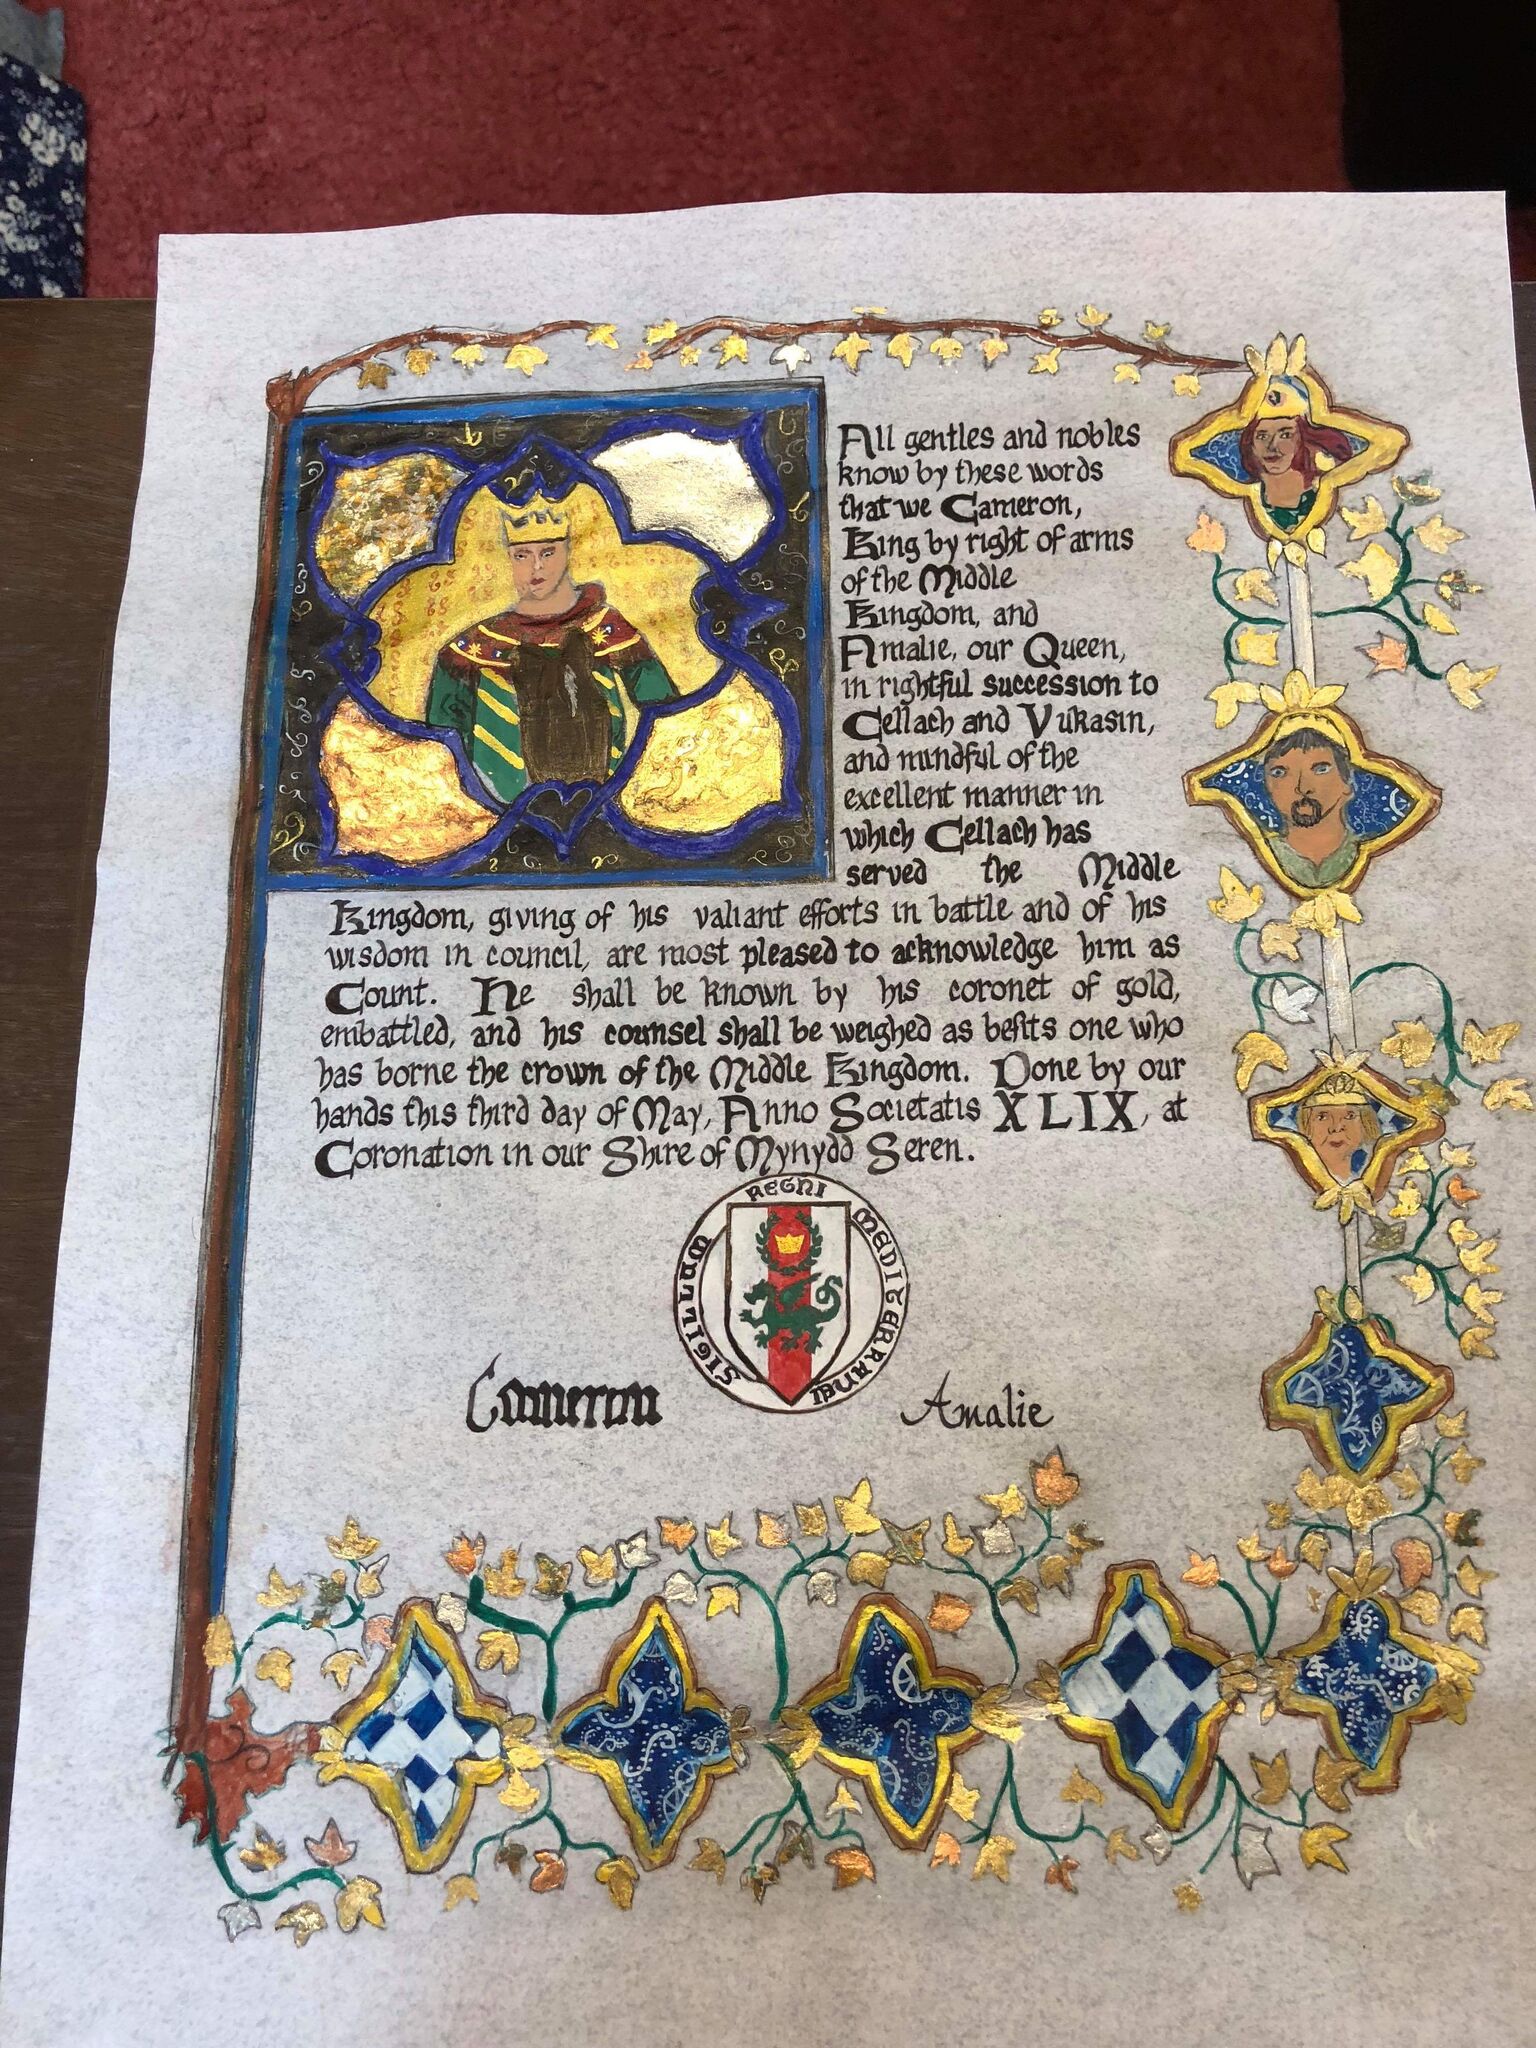 All gentles and nobles
know by these words
that we Cameron,
King by right of arms
of the Middle
Kingdom, and
Amalie, our Queen,
in rightful succession to
Cellach and Vukasin,
and mindful of the
excellent manner in
which Cellach has
served the Middle
Kingdom, giving of his valiant efforts in battle and of his
wisdom in council, are most pleased to acknowledge him as
Count. He shall be known by his coronet of gold,
embattled, and his counsel shall be weighed as befits one who
has borne the crown of the Middle Kingdom. Done by our
hands this third day of May, Anno Societatis XLIX, at
Coronation in our Shire of Mynydd Seren.
SIGILLUM REGNI MEDITERRANEI
Cameron
Amalie